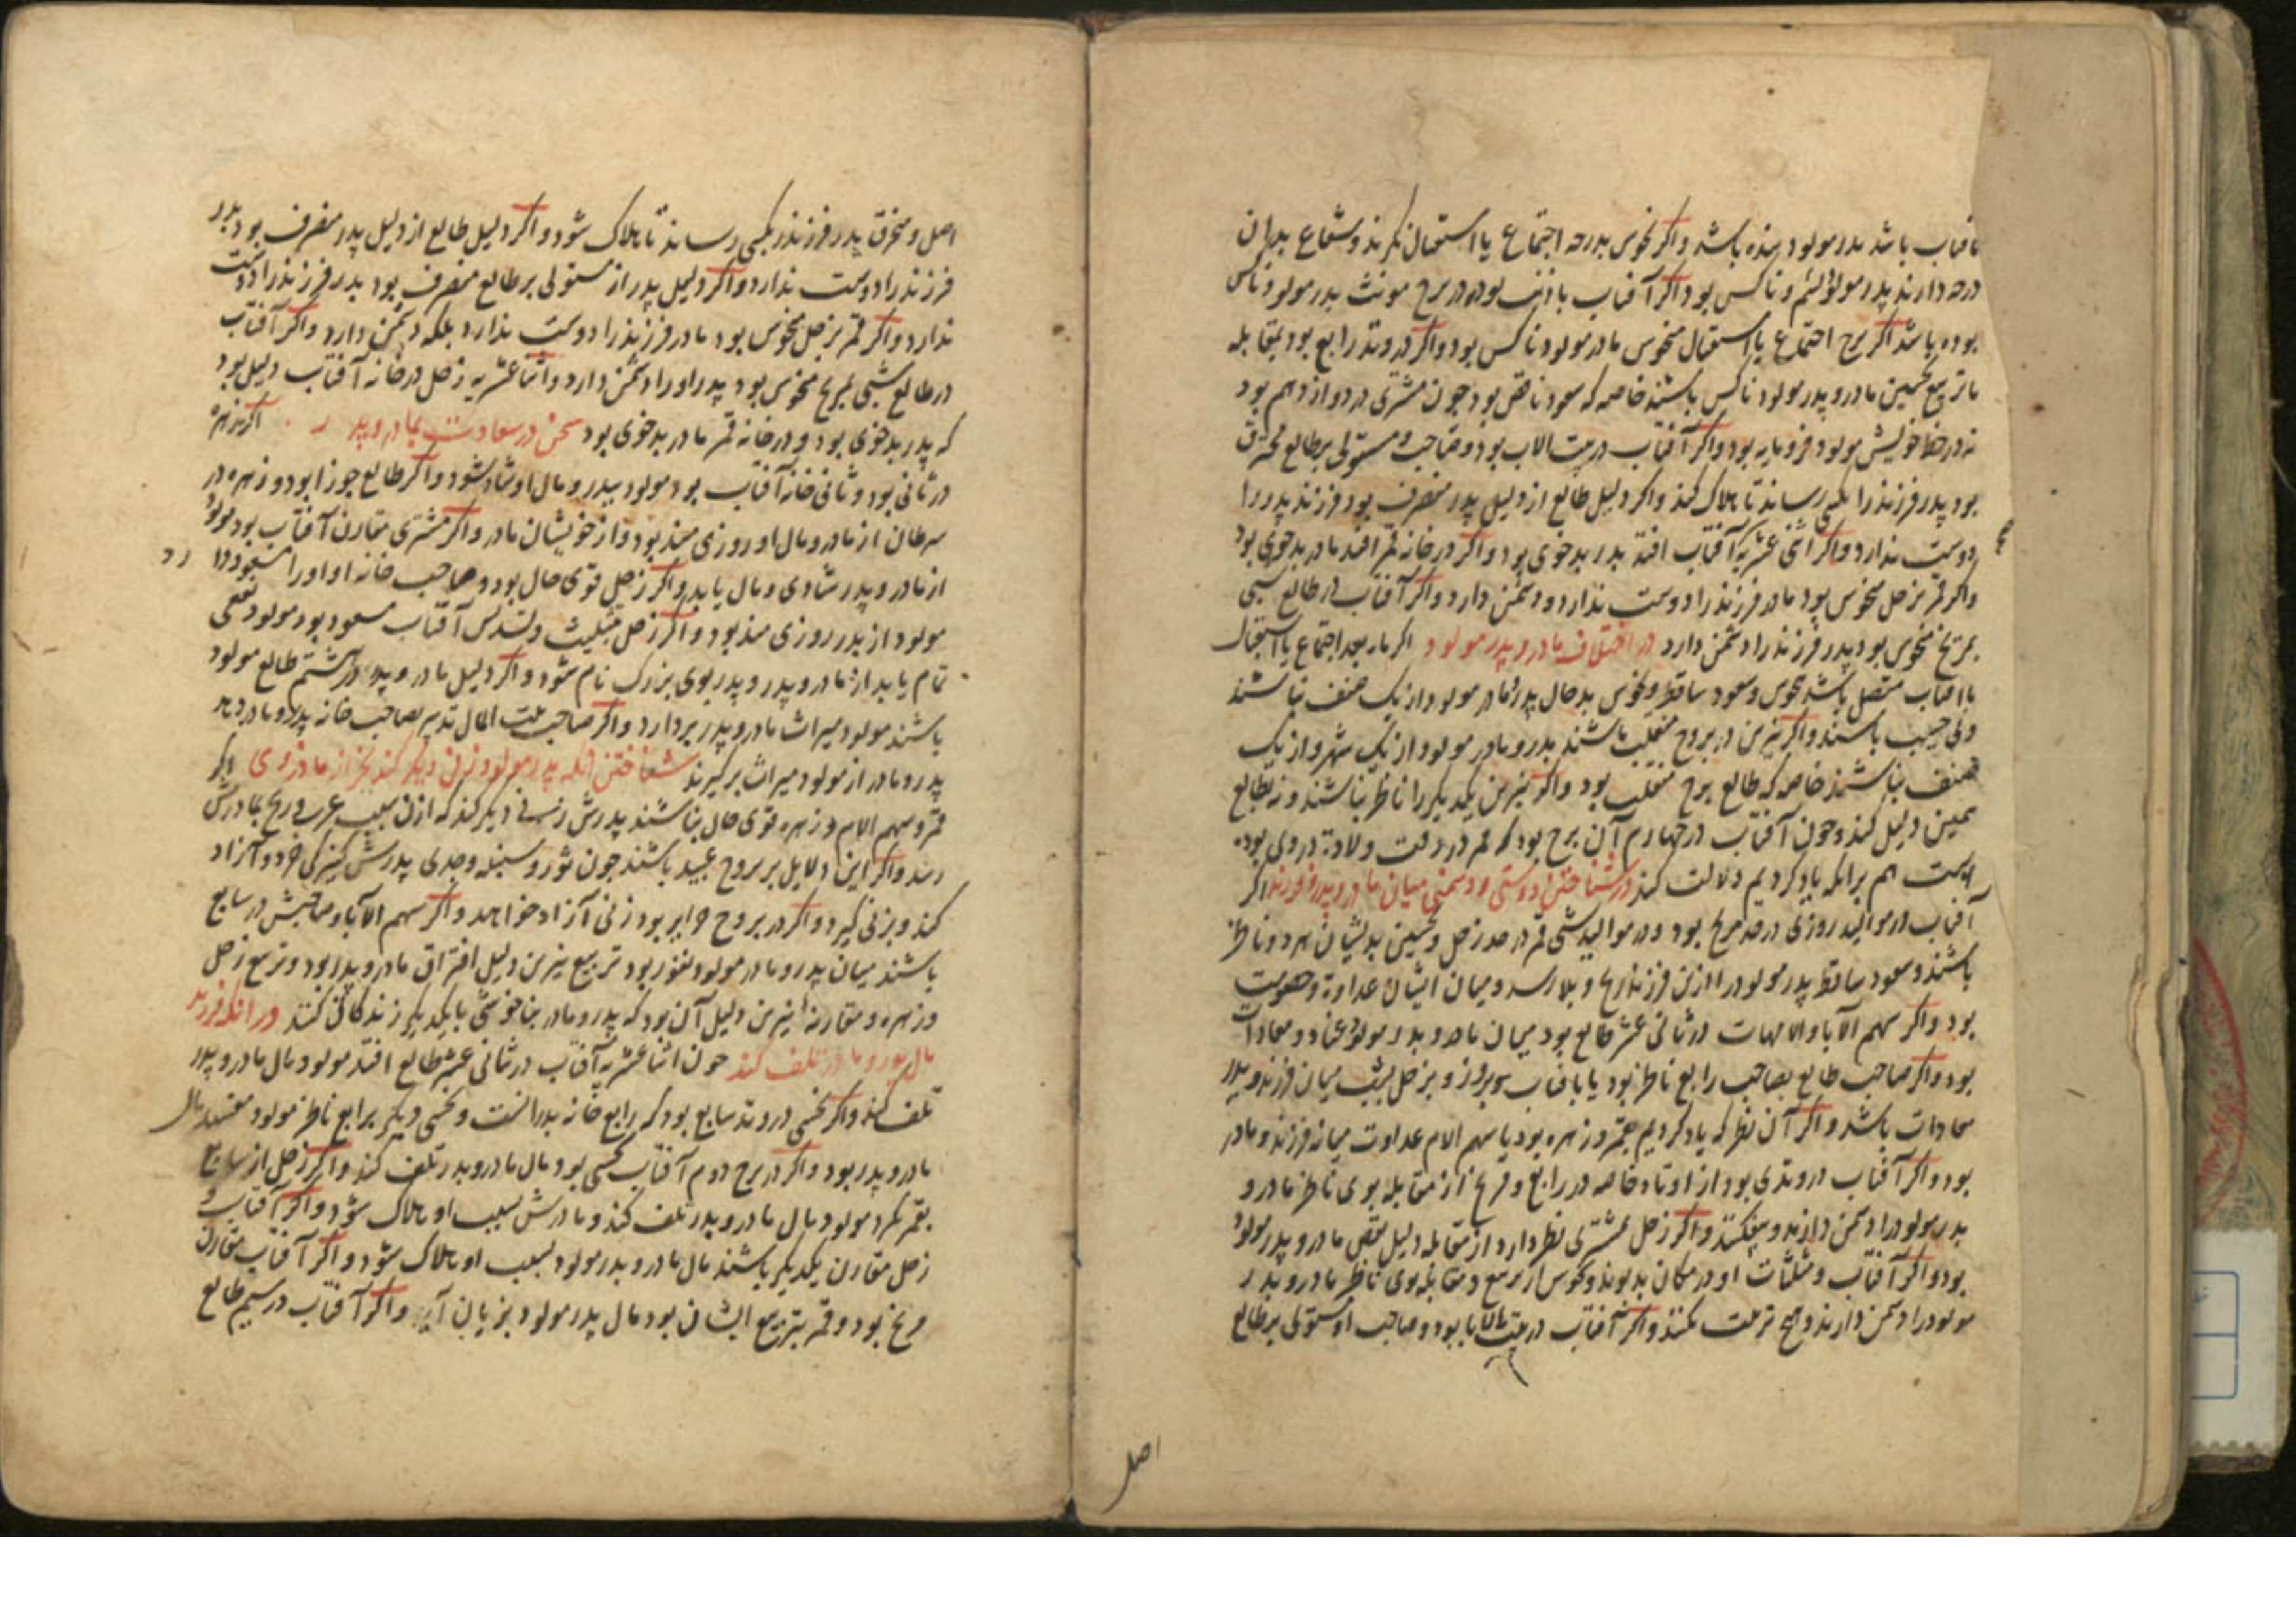 بافتاب باشد پدر مولود بنده باشد واکر نحوس بدرجه اجتماع یا استقبال نکرند وشعاع بدان
درجه دارند پدر مولود لئیم وناکس بود واکر آفتاب با ذنب بود در برج مونث پدر مولود ناکس
بوده باشد اکر برج اجتماع یا استقبال منحوس مادر مولود ناکس بود واکر در وتد رابع بود بمقابله
یا تربیع نحسین مادر وپدر مولود ناکس باشند خاصه که سعود ناقص بود چون مشتری در دوازدهم بود
نه در حظ خویش مولود فرومایه بود واکر آفتاب در بیت الاب بود وصاحب ومستولی برطالع محترق
بود پدر فرزند را بکسی رساند تا هلاک کند واکر دلیل طالع از دلیل پدر منصرف بود فرزند پدر را
دوست ندارد واکر اثنی عشریه آفتاب افتد پدر بدخوی بود واکر در خانه قمر افتد مادر بدخوی بود
واکر قمر بزحل منحوس بود مادر فرزند را دوست ندارد ودشمن دارد واکر آفتاب در طالع شبی
بمریخ منحوس بود پدر فرزند را دشمن دارد در اختلاف مادر وپدر مولود اکر ماه بعد اجتماع یا استقبال
باافتاب متصل باشد بنحوس وسعود ساقط ونحوس بدحال پدر ومادر مولود از یک صنف نباشند
وبی حسب باشند واکر نیرین در بروج منقلب باشند پدر ومادر مولود از یک شهر واز یک
صنف نباشند خاصه که طالع برج منقلب بود واکر نیرین یکدیکر را ناظر نباشند ونه بطالع
همین دلیل کند وچون آفتاب در چهارم آن برج بود که قمر در وقت ولادة در وی بوده
است هم برانکه یاد کردیم دلالت کند در شناختن دوستی ودشمنی میان مادر وپدر وفرزند اکر
آفتاب در موالید روزی در حد مریخ بود ودر موالید شبی قمر در حد زحل ونحسین بدیشان هر دو ناظر
باشند وسعود ساقط پدر مولود را از ین فرزند رنج وبلا رسد ومیان ایشان عداوة وخصومت
بود واکر سهم الآبا والامهات در ثانی عشر طالع بود میان مادر وپدر مولود عناد ومعادات
بود واکر صاحب طالع بصاحب رابع ناظر نبود یا بافتاب بروز وبزحل بشب میان فرزند وپدر
معادات باشد واکر آن نظر که یاد کردیم بقمر وزهره بود یا سهم الام عداوت میانه فرزند ومادر
بود واکر آفتاب در وتدی بود از اوتاد خاصه در رابع ومریخ از مقابله بوی ناظر مادر و
پدر مولود را دشمن دارند وبیفکنند واکر زحل بمشتری نظر دارد از مقابله دلیل بغض مادر وپدر مولود
بود واکر آفتاب ومثلثات او در مکان بد بوند ونحوس از تربیع ومقابله بوی ناظر مادر وپدر
مولود را دشمن دارند وهیچ تربیت نکنند واکر آفتاب در بیت الابا بود وصاحب او مستولی بر طالع
اصل
اصل ومحترق پدر فرزند را بکسی رساند تا هلاک شود واکر دلیل طالع از دلیل پدر منصرف بود پدر
فرزند را دوست ندارد واکر دلیل پدر از مستولی بر طالع منصرف بود پدر فرزند را دوست
ندارد واکر قمر بزحل منحوس بود مادر فرزند را دوست ندارد بلکه دشمن دارد واکر آفتاب
در طالع شبی بمریخ منحوس بود پدر او را دشمن دارد واثنا عشریه زحل در خانه آفتاب دلیل بود
که پدر بدخوی بود ودر خانه قمر مادر بدخوی بود سخن در سعادت بمادر وپدر اکر زهره
در ثانی بود وثانی خانه آفتاب بود مولود بپدر ومال او شاد شود واکر طالع جوزا بود وزهره در
سرطان از مادر ومال او روزی مند بود واز خویشان مادر واکر مشتری مقارن آفتاب بود مولود
از مادر وپدر شادی ومال یابد واکر زحل قوی حال بود وصاحب خانه او او را مسعود دارد
مولود از پدر روزی مند بود واکر زحل بتثلیث وتسدیس آفتاب مسعود بود مولود نفعی
تمام یابد از مادر وپدر وپدر بوی بزرک نام شود واکر دلیل مادر وپدر در هشتم طالع مولود
باشند مولود میراث مادر وپدر بردارد واکر صاحب بیت المال تدبیر بصاحب خانه پدر ومادر دهد
پدر ومادر از مولود میراث برکیرند شناختن انکه پدر مولود زنی دیکر کند بجز از مادر وی اکر
قمر وسهم الام وزهره قوی حال نباشند پدرش زنی دیکر کند که ازان سبب غم ورنج بمادرش
رسد واکر این دلایل بر بروج عبید باشند چون ثور وسنبله وجدی پدرش کنیزکی خرد وآزاد
کند وبزنی کیرد واکر در بروج حرایر بود زنی آزاد خواهد واکر سهم الآبا وصاحبش در سابع
باشند میان پدر ومادر مولود نفور بود تربیع نیرین دلیل افتراق مادر وپدر بود وتربیع زحل
وزهره ومقارنه نیرین دلیل آن بود که پدر ومادر بناخوشی با یکدیکر زندکانی کنند در انکه فرزند
مال پدر ومادر تلف کند چون اثنا عشریه آفتاب در ثانی عشر طالع افتد مولود مال مادر وپدر
تلف کند واکر نحسی در وتد سابع بود که رابع خانه پدر است ونحسی دیکر برابع ناظر مولود مفسد مال
مادر وپدر بود واکر در برج دوم آفتاب نحسی بود مال مادر وپدر تلف کند واکر زحل از سابع
بقمر نکرد مولود مال مادر وپدر تلف کند ومادرش بسبب او هلاک شود واکر آفتاب و
زحل مقارن یکدیکر باشند مال مادر وپدر مولود بسبب او هلاک شود واکر آفتاب مقارن
مریخ بود وقمر بتربیع ایشان بود مال پدر مولود بزیان آید واکر آفتاب در سیم طالع